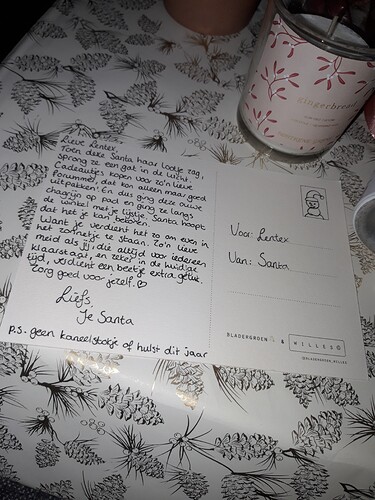 gingerbread
Lieve Lentex,
Toen deze Santa haar lootje zag,
Sprong ze een gat in de lucht.
Cadeautjes kopen voor zo'n lieve
Forummer, dat kon alleen maar goed
uitpakken. En dus ging deze ouwe
chagrijn op pad en ging ze langs
de winkel met je lijstje. Santa hoopt
dat het je kan bekoren.
Want je verdient het zo om even in
het zonnetje te staan. Zo'n lieve
meid als jij, die altijd voor iedereen
klaarstaat, en zeker in de huidige
tijd, verdient een beetje extra geluk.
Zorg goed voor jezelf. ♡
Liefs,
Je Santa
P.S. geen kaneelstokje of hulst dit jaar
Voor: Lentex
Van: Santa
BLADERGROEN & HILLES
@BLADERGROEN_HILLES